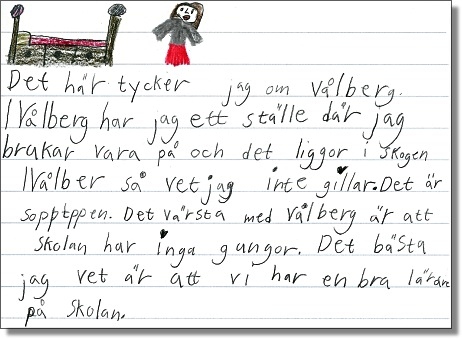 Det här tycker jag om Vålberg.
I Vålberg har jag ett ställe där jag
brukar vara på och det liggor i skogen
I Vålber så vet jag inte gillar. Det är
sopptppen. Det värsta med Vålberg är att
skolan har inga gungor. Det bästa
jag vet är att vi har en bra lärare
på skolan.